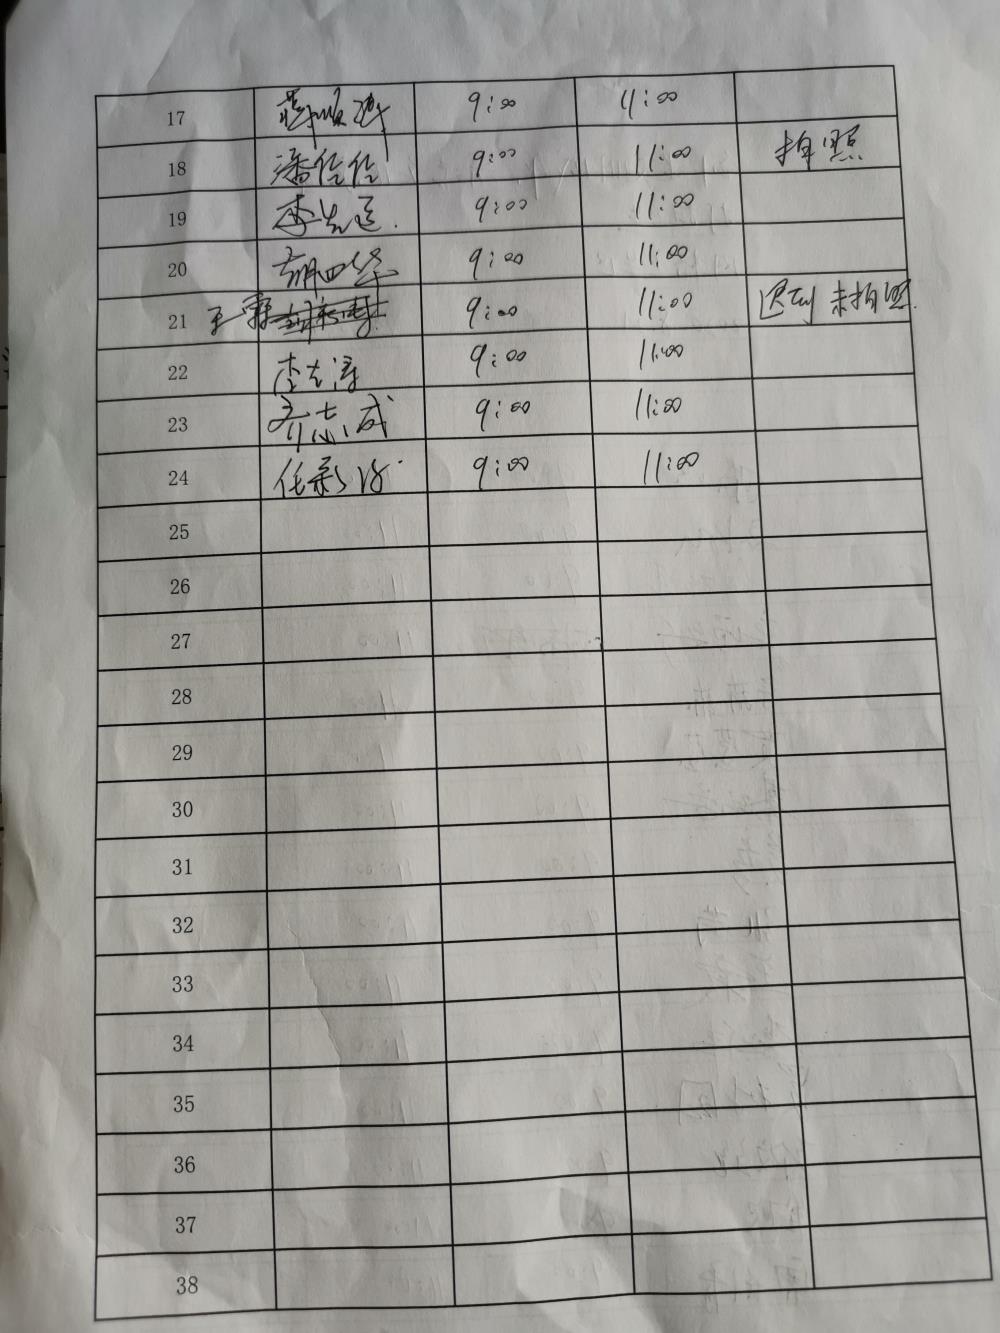 17 9:00 11:00
18 潘佳佳 9:00 11:00 拍照
19 9:00 11:00
20 胡四华 9:00 11:00
21 王霖 9:00 11:00 迟到 未拍照
22 李志涛 9:00 11:00
23 齐志成 9:00 11:00
24 任彩 9:00 11:00
25
26
27
28
29
30
31
32
33
34
35
36
37
38